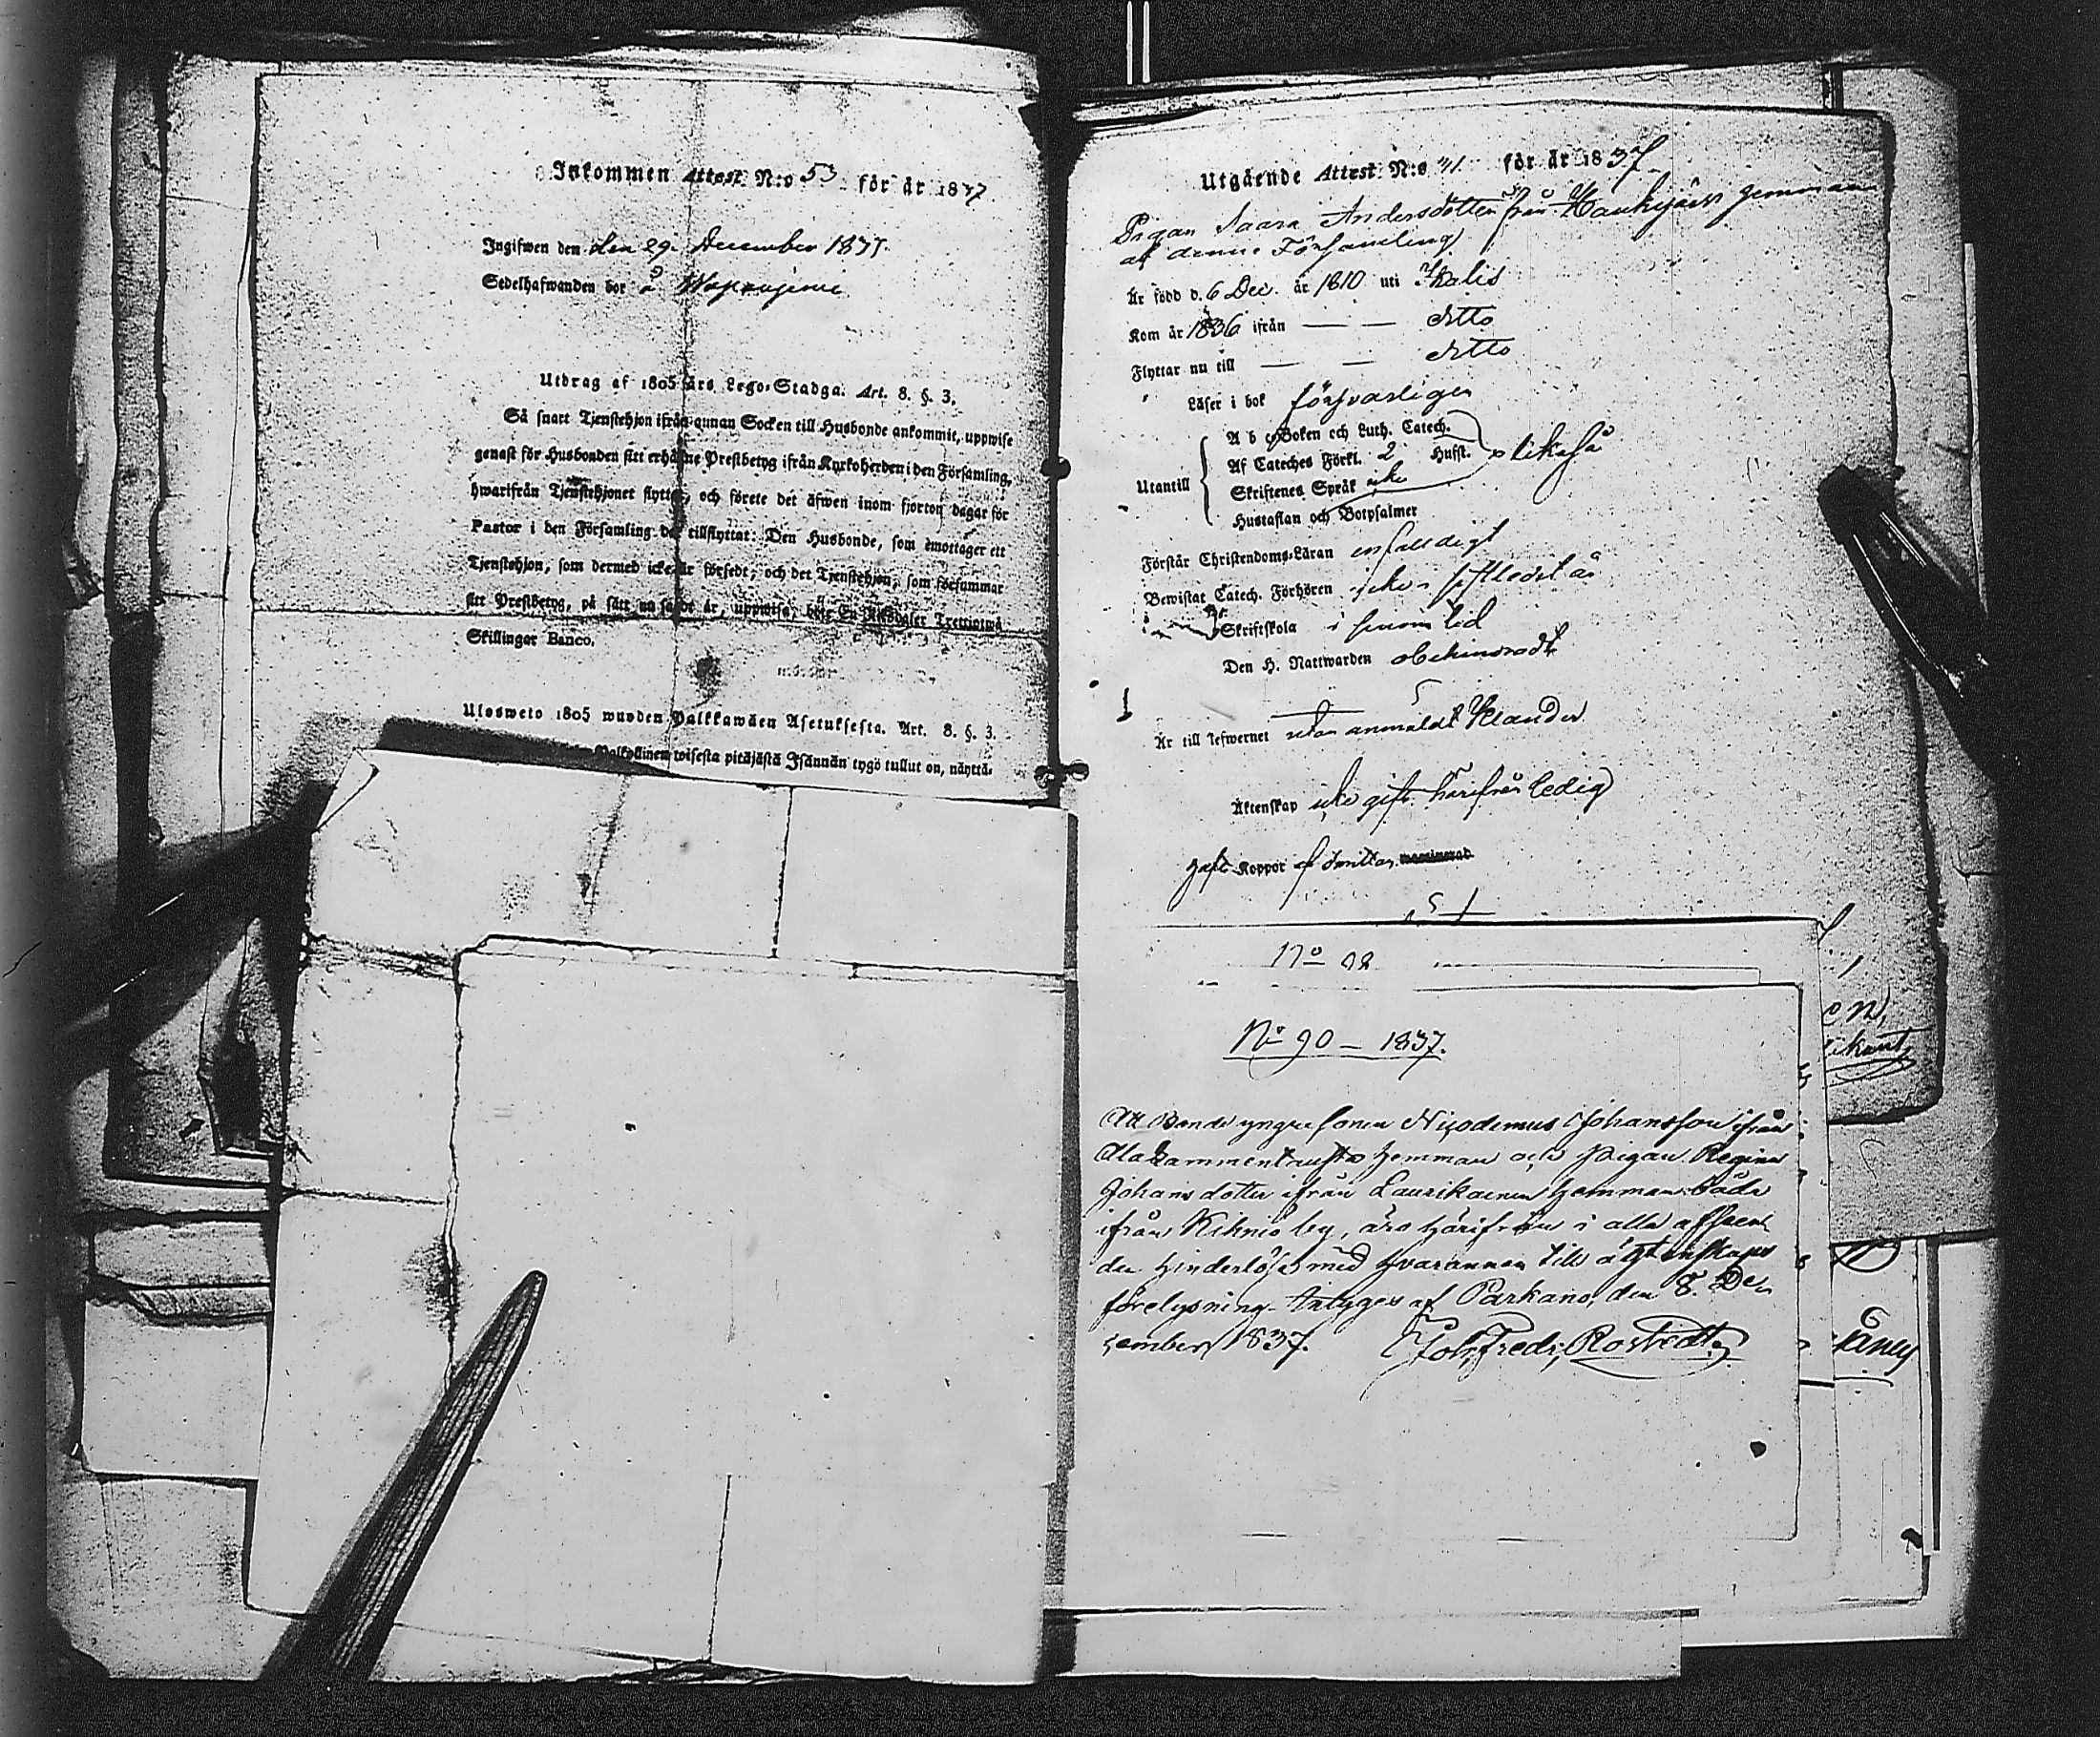 Inkommen Attest N:o 53 för år 1837
Ingifwen den den 29. December 1837.
Sedelhafwanden bor å
Utdrag af 1805 års Lego-Stadga. Art. 8. §. 3.
Så snart Tjenstehjon ifrån annan Socken till Husbonde ankommit, uppwise
genast för Husbonden sitt erhållne Prestbetyg ifrån Kyrkoherden i den Församling,
hwarifrån Tjenstehjonet flyttat, och förete det äfwen inom fjorton dagar för
Pastor i den Församling det tillflyttat: Den Husbonde, som emottager ett
Tjenstehjon, som dermed icke är försedt, och det Tjenstehjon, som försummar
sitt Prestbetyg, på sätt nu sagdt är, uppwisa, böte En Riksdaler Trettiotwå
Skillingar Banco.
Ulosweto 1805 wuoden Palkkawäen Asetuksesta. Art. 8. §. 3.
Palkollinen toisesta pitäjästä Isännän tygö tullut on, näyttä-
Utgående Attest N:o 41 för år 1837
Pigan Saara Andersdotter från Hankijärvi hemman
af denna Församling
Är född d. 6 Dec. år 1810 uti Ikalis
Kom år 1836 ifrån — — ditto
Flyttar nu till — — ditto
Läser i bok försvarligen
A b c-Boken och Luth. Catech.
Af Cateches Förkl. 2 Hufst. likaså
Utantill
Skriftenes Språk icke
Hustaflan och Botpsalmer
Förstår Christendoms-Läran enfaldigt
Bewistat Catech. Förhören icke sistledit år
Skriftskola i sinom tid
Den H. Nattwarden obehindradt
Är till lefwernet utan anmäldt klander
Äktenskap icke gift härifrån ledig
haft Koppor af smittan
N:o 92
N:o 90 – 1837.
Att Bonde yngre sonen Nicodemus Johansson ifrån
Alakammentausta hemman och Pigan Regina
Johansdotter ifrån Laurikainen hemman båda
ifrån Kihniö by, äro härifrån i alla afseen
den hinderlöse med hvarannan till ägtenskaps
förelysning. Intyges af Parkano, den 8. De-
cember 1837. Joh. Fredr. Rostedt